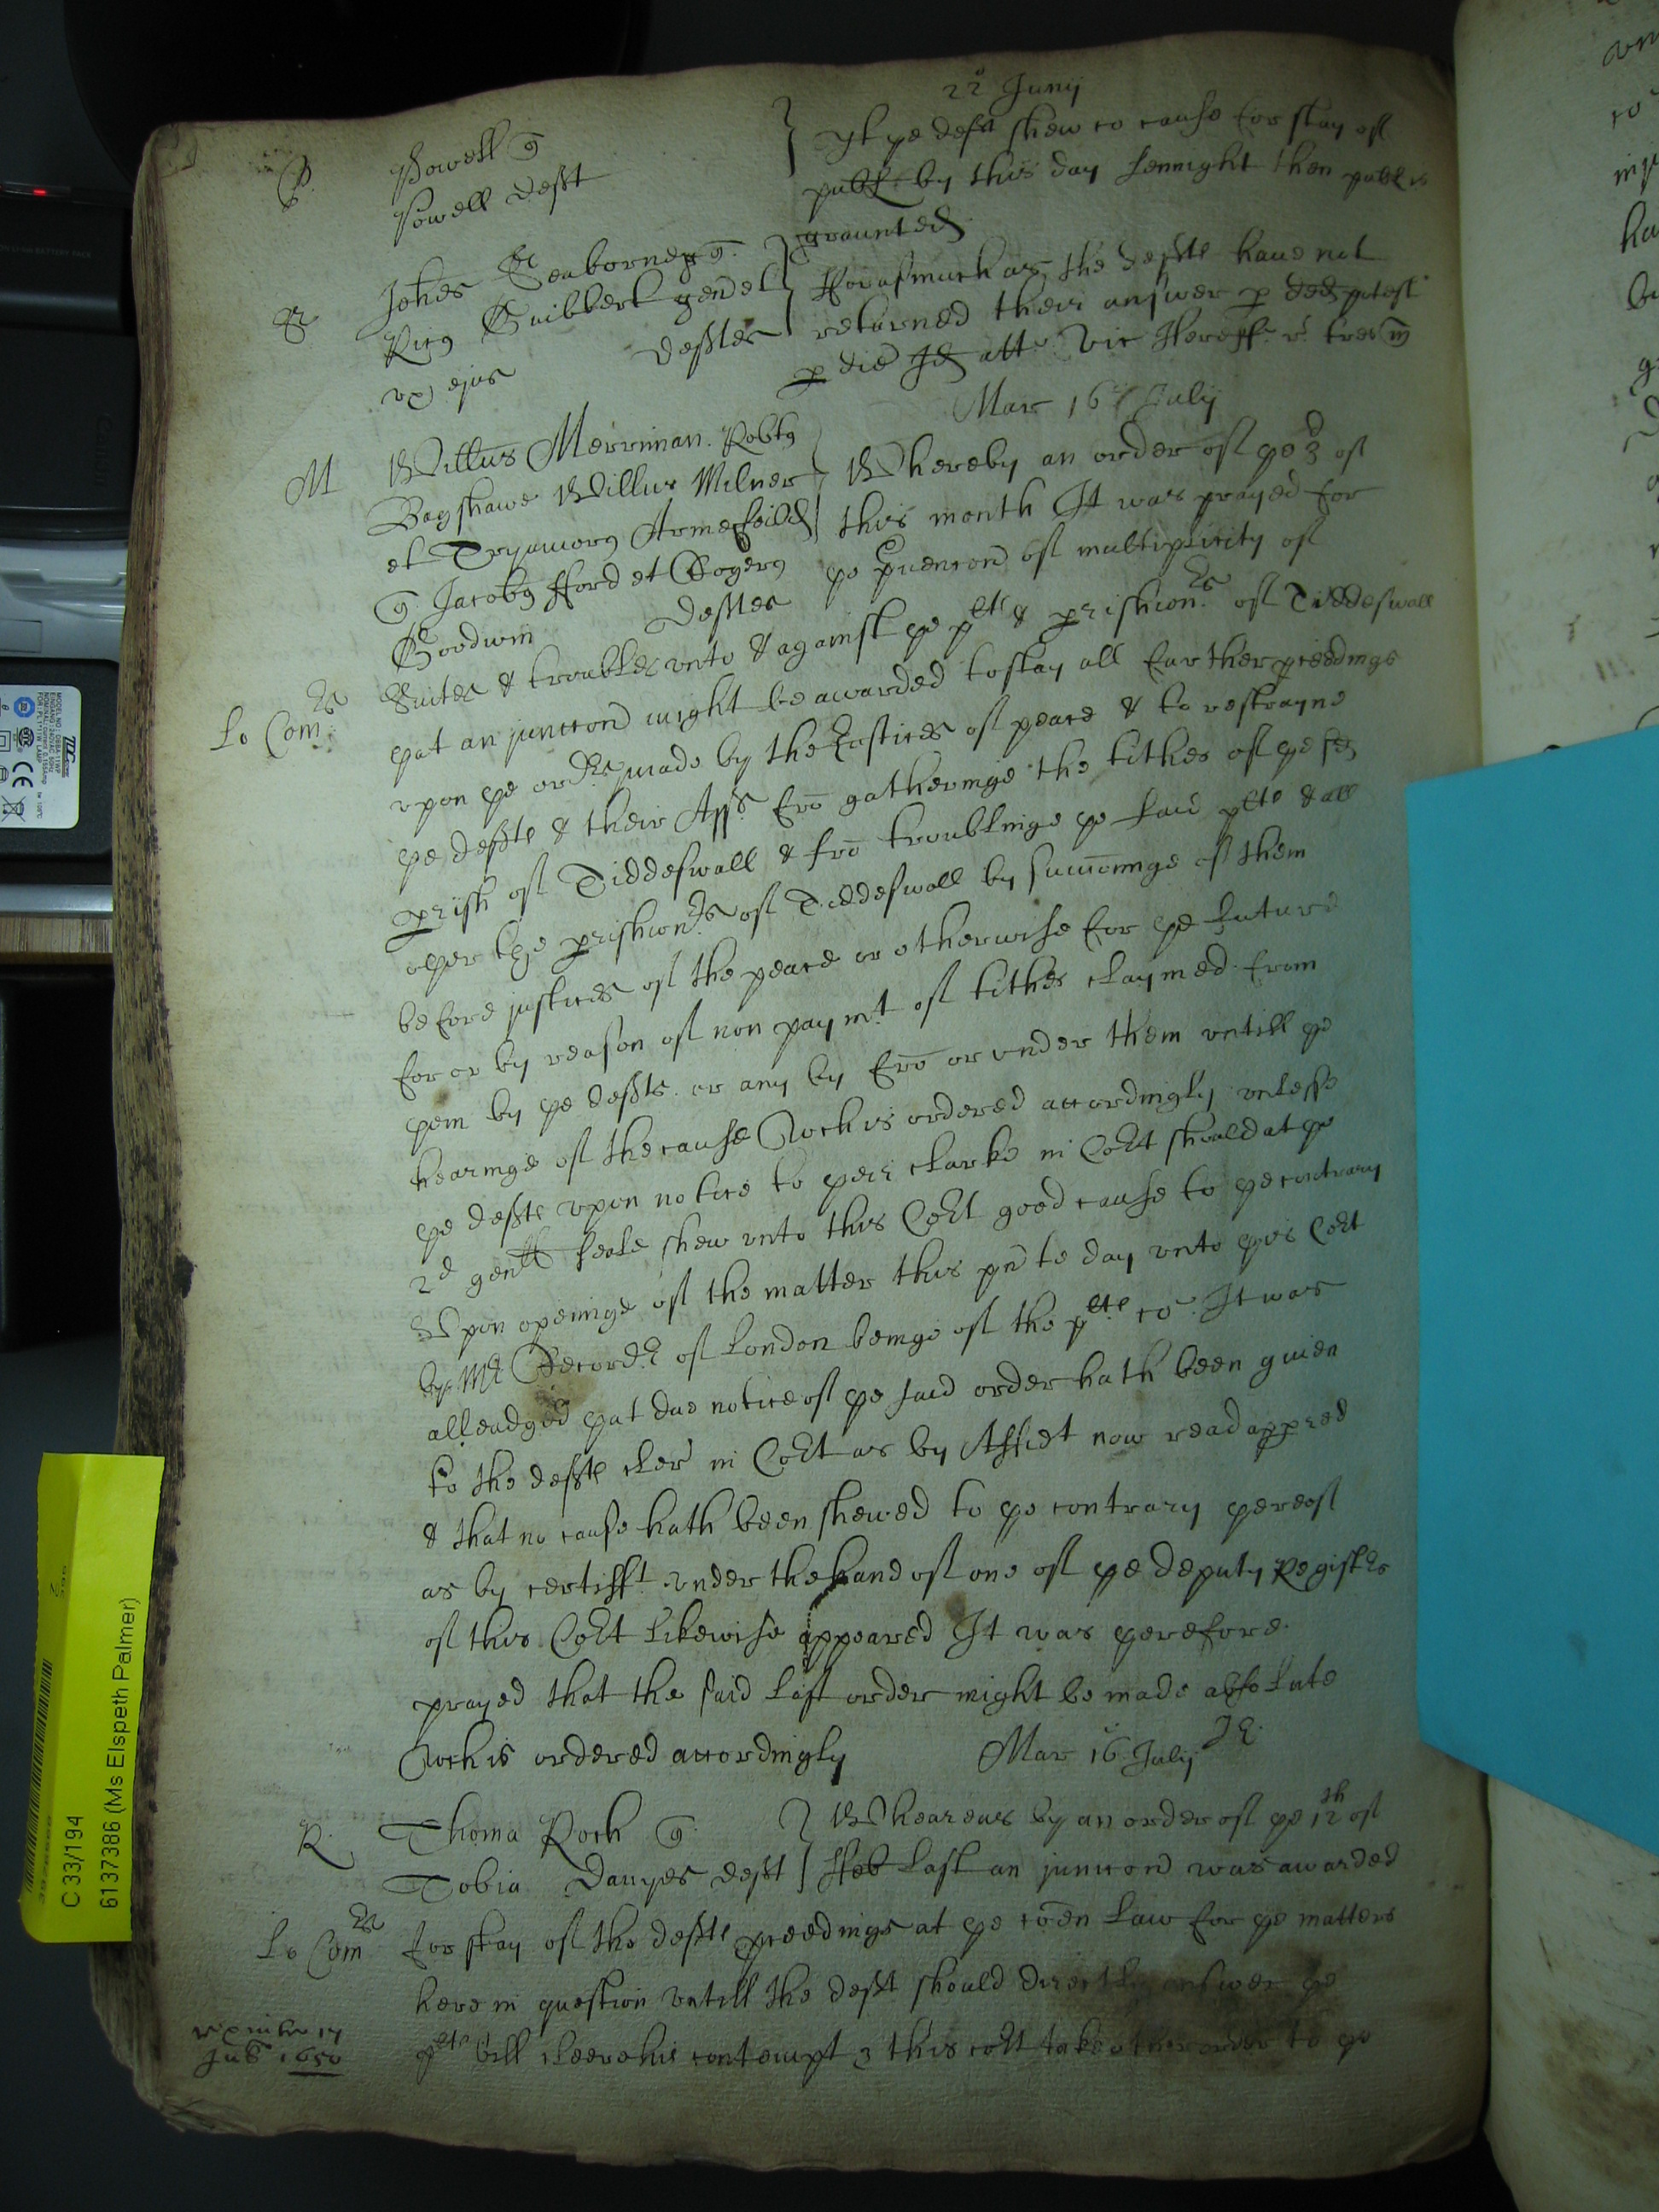 22o Junij
P Powell q
Powell Defft
Yf ye defft shew no cause for stay of
publ: by this day sennight then publ is
graunted
S Johes Seaborne ar q.
Ricus Guibbert gen et
ux ejus Defftes
Forasmuch as the deffts have not
returned their answer p ded potest
p die Id att vic Hereff r tres m
Mar 16o July
M Willus Merriman Robtus
Bagshawe Willus Milner
et Tryamorus Armefeild
q Jacobus fford et Rogerus
Goodwin Defftes
Whereby an order of ye 3d of
this month It was prayed for
ye prvencon of multiplicity of
Lo Comrs
Suites & troubles vnto & against ye plts & prishionrs of Tiddeswall
yat an juncton might be awarded to stay all further pceedings
vpon ye ordrs made by the Justices of peace & to restrayne
ye deffts & their Asss fro gatheringe the tithes of ye sd
prish of Tiddeswall & fro troublinge ye said plts & all
oyer the prishionrs of Tiddeswall by sumoninge of them
before justices of the peace or otherwise for ye future
for or by reason of non paymt of tithes claymed from
yem by ye deffts or any by fro or vnder them vntill ye
hearinge of the cause Wch is ordered accordingly vnlesse
ye deffts vpon notice to yeir clarke in Cort should at ye
2d genll seale shew vnto this Cort good cause to ye contrary
Vpon openinge of the matter this pnte day vnto yis Cort
by Mr Recordr of London beinge of the plts co It was
alleadged yat due notice of ye said order hath been guien
to the deffts cler in Cort as by Affidt now read appred
& that no cause hath been shewed to ye contrary yereof
as by certifft vnder the hand of one of ye deputy Registrs
of this Cort likewise appeared It was yerefore
prayed that the said last order might be made absolute
Wch is ordered accordingly
Mar 16o July
R Thoma Roch q
Tobia Dauyes defft
Wheareas by an order of ye 12th of
Feb last an juncton was awarded
Lo Comrs for stay of the deffts pceedings at ye coen law for ye matters
here in question vntill the defft should directly answer ye
plts bill cleere his contempt & this cort take other order to ye
July 1650
C 33/194
6137386 (Ms Elspeth Palmer)
TDC